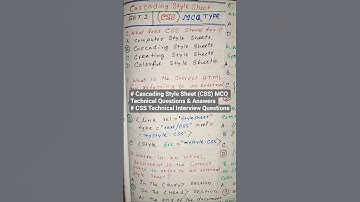 Cascading Style Sheet
SET 1 (CSS) MCQ TYPE
What does CSS stand for?
A. Computer Style Sheets
B. Cascading Style Sheets
C. Creating Style Sheets
D. Colorful Style Sheets
What is the correct HTML
referring to an external
# Cascading Style Sheet (CSS) MCQ
Technical Questions & Answers
# CSS Technical Interview Questions
<link rel="stylesheet"
type="text/css" href=
"mystyle.css">
C. <style src="mystyle.css">
Where in an HTML
document is the correct
place to refer to an external
style sheet?
A. In the <body> section
In the <head> section
the end of the document